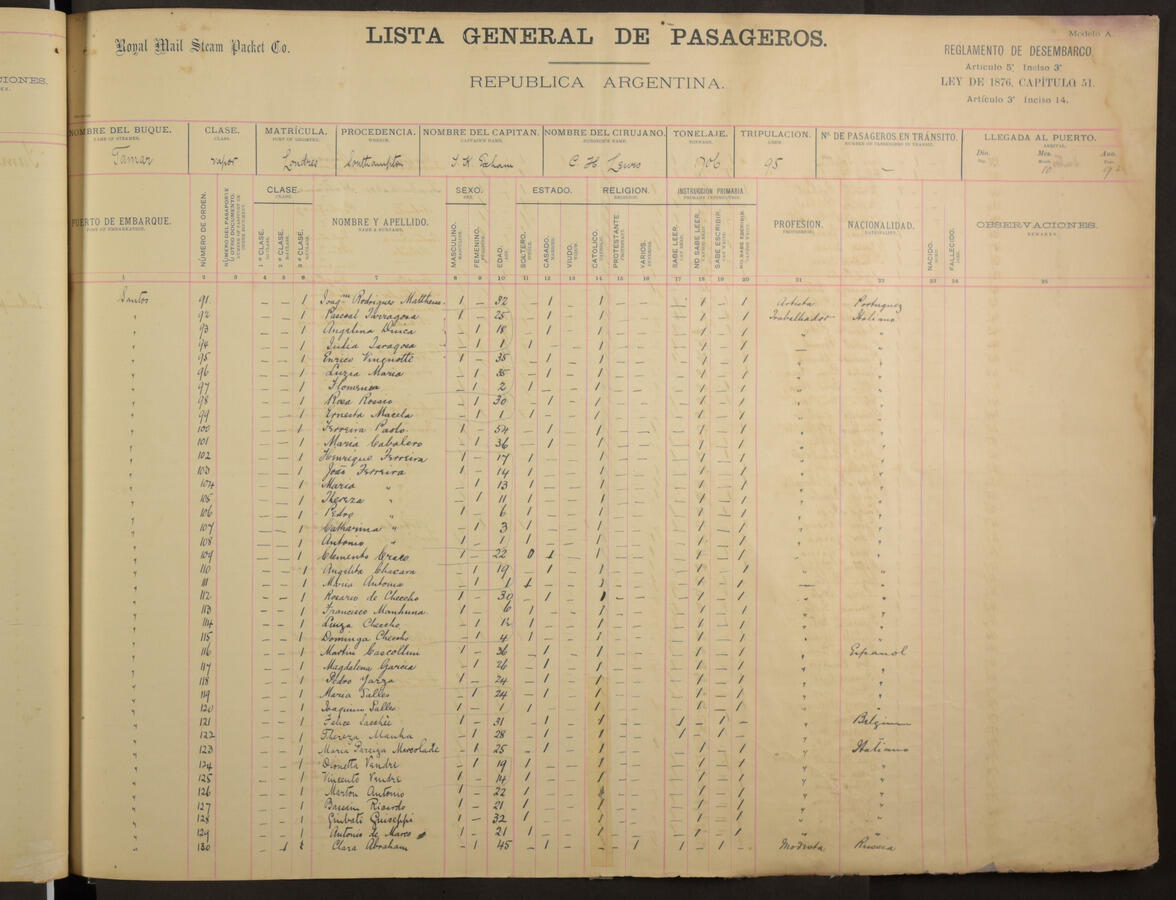 CIONES.
Royal Mail Steam Packet Co.
LISTA GENERAL DE PASAGEROS.
REPUBLICA ARGENTINA.
Modelo A.
REGLAMENTO DE DESEMBARCO.
Artículo 5º, Inciso 3º
LEY DE 1876, CAPÍTULO 51.
Artículo 3º Inciso 14.
NOMBRE DEL BUQUE. CLASE. MATRÍCULA. PROCEDENCIA. NOMBRE DEL CAPITAN. NOMBRE DEL CIRUJANO. TONELAJE. TRIPULACION. Nº DE PASAGEROS EN TRÁNSITO. LLEGADA AL PUERTO.
NAME OF STEAMER. CLASS. PORT OF REGISTRY. WHENCE. CAPTAIN'S NAME. SURGEON'S NAME. TONNAGE. CREW. NUMBER OF PASSENGERS IN TRANSIT. ARRIVAL.
Dia. Mes. Ano.
Tamar vapor Londres Southampton C. H. Lewis 95 — 10
PUERTO DE EMBARQUE. NÚMERO DE ORDEN. CLASE. NOMBRE Y APELLIDO. SEXO. EDAD. ESTADO. RELIGION. INSTRUCCIÓN PRIMARIA PROFESION. NACIONALIDAD. OBSERVACIONES.
PORT OF EMBARKATION. NÚMERO DEL PASAPORTE U OTRO DOCUMENTO. CLASS. NAME & SURNAME. SEX. AGE. PRIMARY INSTRUCTION PROFESSION. NATIONALITY. REMARKS.
1ª CLASE. 2ª CLASE. 3ª CLASE. MASCULINO. FEMENINO. SOLTERO. CASADO. VIUDO. CATOLICO. PROTESTANTE. VARIOS. SABE LEER. NO SABE LEER. SABE ESCRIBIR. NO SABE ESCRIBIR. NACIDO. FALLECIDO.
1 2 3 4 5 6 7 8 9 10 11 12 13 14 15 16 17 18 19 20 21 22 23 24 25
Santos 91 — — 1 Joaqm Rodrigues Mattheus 1 — 32 — 1 — 1 — — — 1 — 1 Artista Portuguez
" 92 — — 1 Pascoal 1 — 25 — 1 — 1 — — — 1 — 1 Trabalhador Italiano
" 93 — — 1 Angelina — 1 18 — 1 — 1 — — — 1 — 1 " "
" 94 — — 1 Julia Taragosa — 1 1 1 — — 1 — — — 1 — 1 — "
" 95 — — 1 Enrico 1 — 35 — 1 — 1 — — — 1 — 1 " "
" 96 — — 1 Luzia Maria — 1 35 — 1 — 1 — — — 1 — 1 " "
" 97 — — 1 — 1 2 1 — — 1 — — — 1 — 1 " "
" 98 — — 1 Rosa Rosario 30 — 1 — 1 — — — 1 — 1 " "
" 99 — — 1 Ernesta Macela — 1 1 1 — — 1 — — — 1 — 1 " "
" 100 — — 1 Ferreira Paolo 1 — 54 — 1 — 1 — — — 1 — 1 " "
" 101 — — 1 Maria Cabalero — 1 36 — 1 — 1 — — — 1 — 1 " "
" 102 — — 1 Henrique Ferreira 1 — 17 1 — — 1 — — — 1 — 1 " "
" 103 — — 1 João Ferreira 1 — 14 1 — — 1 — — — 1 — 1 " "
" 104 — — 1 Maria " — 1 13 1 — — 1 — — — 1 — 1 " "
" 105 — — 1 Thereza " — 1 11 1 — — 1 — — — 1 — 1 " "
" 106 — — 1 Pedro " 1 — 6 1 — — 1 — — — 1 — 1 " "
" 107 — — 1 Catharina " — 1 3 1 — — 1 — — — 1 — 1 " "
" 108 — — 1 Antonio " 1 — 1 1 — — 1 — — — 1 — 1 " "
" 109 — — 1 Clemento 1 — 22 0 1 — 1 — — — 1 — 1 " "
" 110 — — 1 Angelita Chacara — 1 19 — 1 — 1 — — — 1 — 1 " "
" 111 — — 1 Maria Antonia — 1 1 1 — — 1 — — — 1 — 1 — "
" 112 — — 1 Rosario de Checcho 1 — 30 — 1 — 1 — — — 1 — 1 " "
" 113 — — 1 Francisco Manhuna 6 1 — — 1 — — — 1 — 1 " "
" 114 — — 1 Luiza Checcho — 1 1 — — 1 — — — 1 — 1 " "
" 115 — — 1 Dominga Checcho — 1 4 1 — — 1 — — — 1 — 1 " "
" 116 — — 1 Martin Cascollun 1 — 36 — 1 — 1 — — — 1 — 1 " Espanol
" 117 — — 1 Magdalena Garcia — 1 26 — 1 — 1 — — — 1 — 1 " "
" 118 — — 1 Pedro Yarza 1 — 24 — 1 — 1 — — — 1 — 1 " "
" 119 — — 1 Maria Salles — 1 24 — 1 — 1 — — — 1 — 1 " "
" 120 — — 1 Joaquino Salles 1 — 1 1 — — 1 — — — 1 — 1 " "
" 121 — — 1 Felice 1 — 31 — 1 — 1 — — 1 — 1 — " Belgium
" 122 — — 1 Thereza Manha — 1 28 — 1 — 1 — — 1 — 1 — " "
" 123 — — 1 Maria Mercolade — 1 25 — 1 — 1 — — — 1 — 1 " Italiano
" 124 — — 1 Dionetta Vandri — 1 19 1 — — 1 — — — 1 — 1 " "
" 125 — — 1 Vincento Vandri 1 — 14 1 — — 1 — — — 1 — 1 " "
" 126 — — 1 Marton Antonio 1 — 22 1 — — 1 — — — 1 — 1 " "
" 127 — — 1 Ricardo 1 — 21 1 — — 1 — — — 1 — 1 " "
" 128 — — 1 Giubati Guiseppi 1 — 32 1 — — 1 — — — 1 — 1 " "
" 129 — — 1 Antonio de Marco 1 — 21 1 — — 1 — — — 1 — 1 " "
" 130 — 1 Clara Abraham — 1 45 1 — — — — 1 1 — 1 — Modista Russia